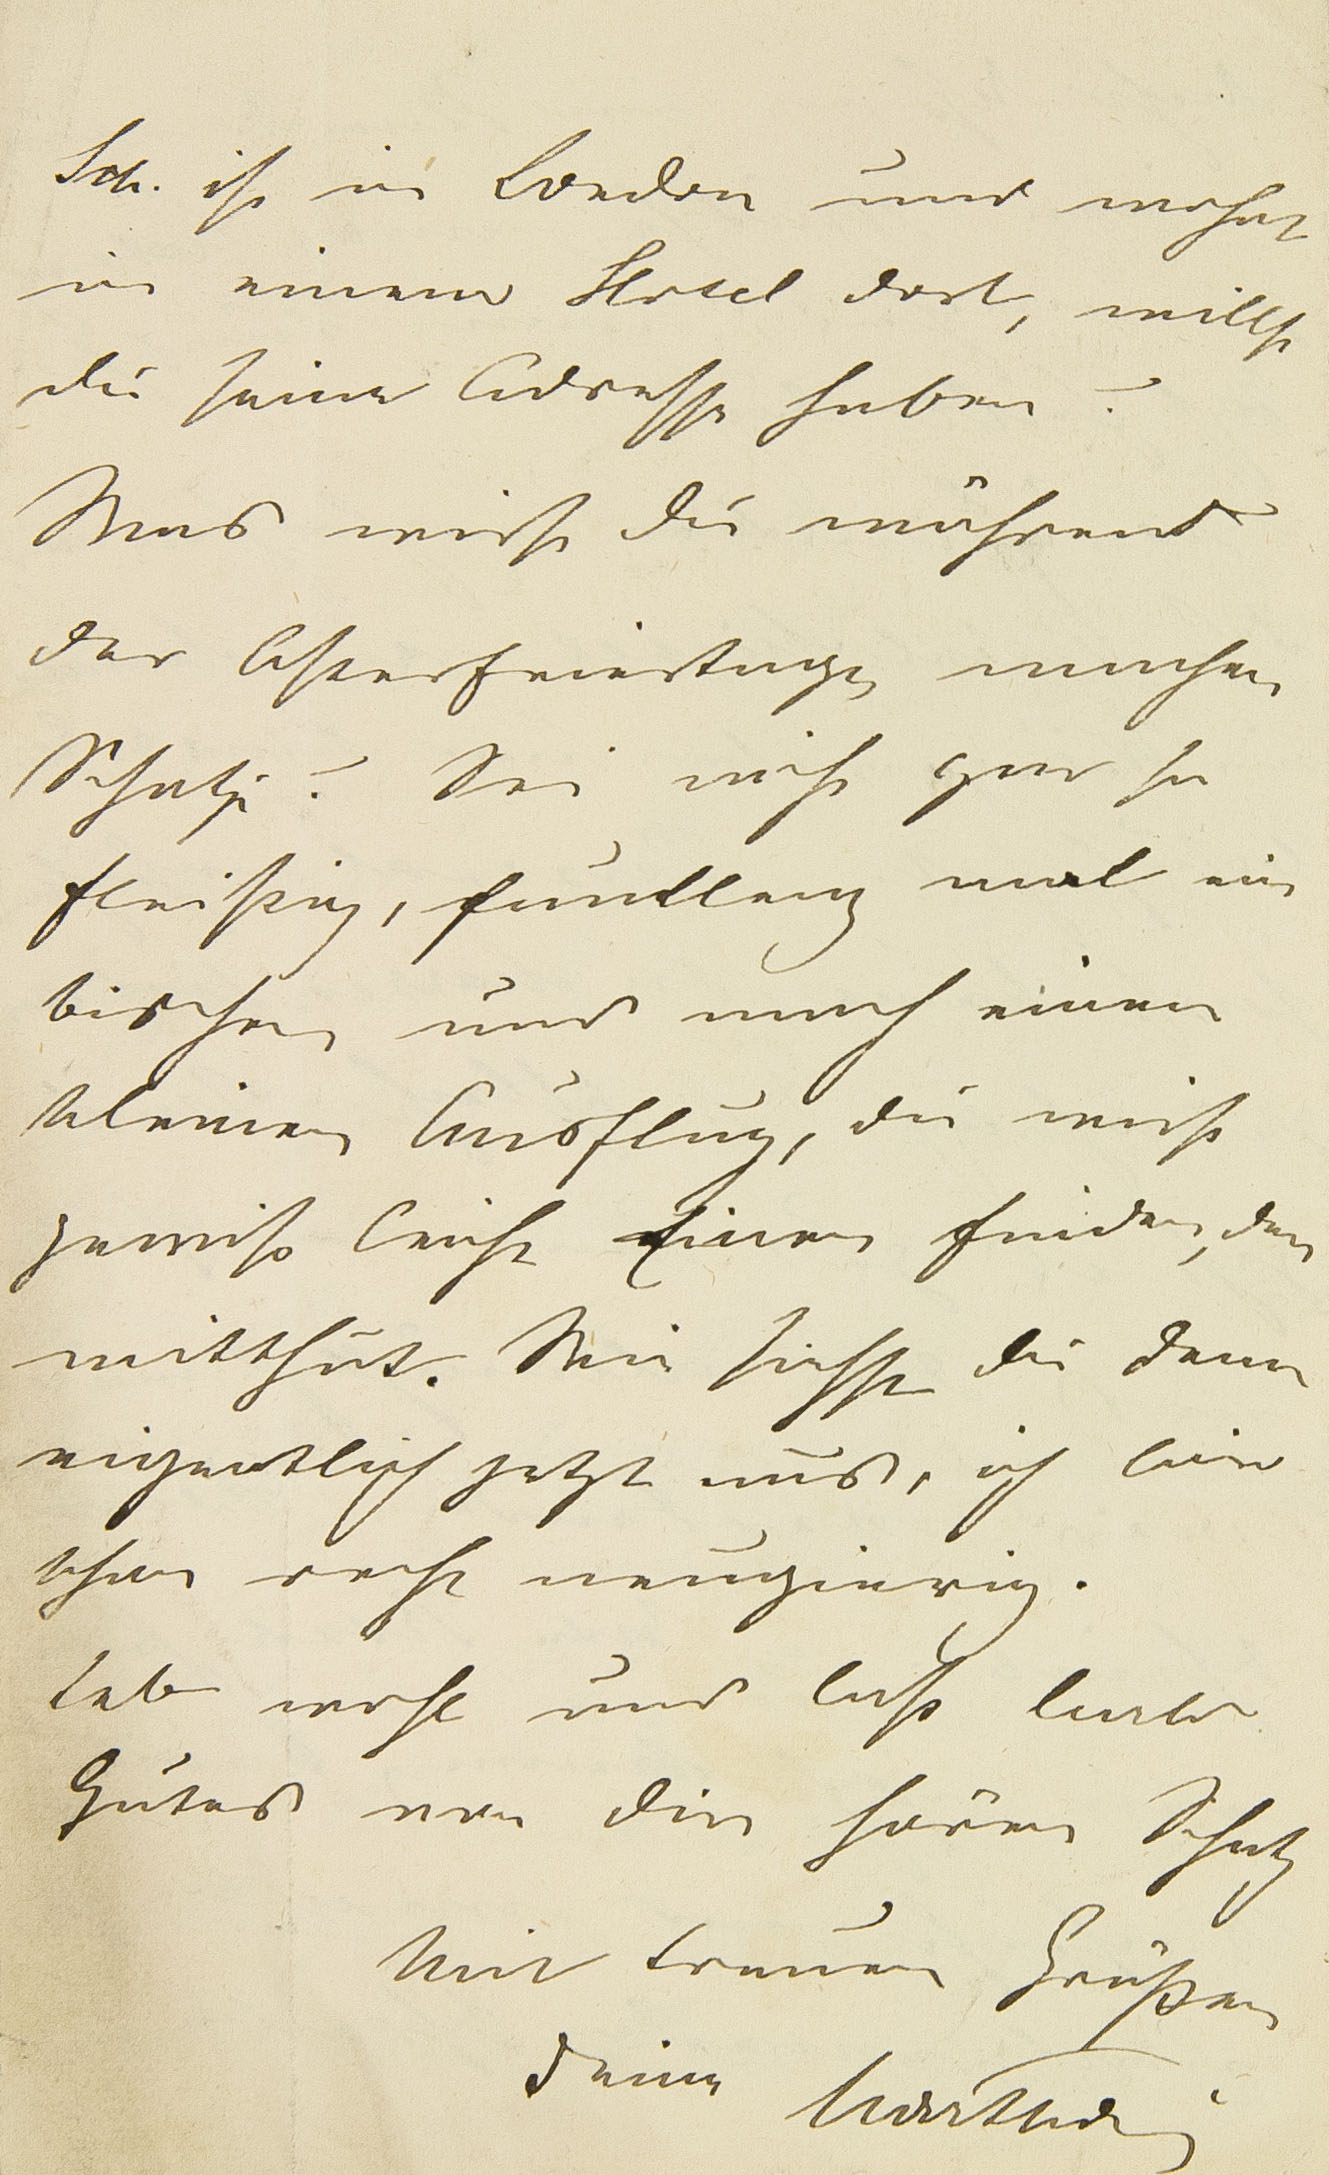 Sch. ist in London und wohnt
in einem Hotel dort, willst
du seine Adresse haben?
Was wirst du während
der Osterfeiertage machen
Schatz? Sei nicht gar so
fleißig, faullenz mal ein
bischen und mach einen
kleinen Ausflug, du wirst
gewiß leicht Einen finden, der
mitthut. Wie siehst du denn
eigentlich jetzt aus, ich bin
schon recht neugierig.
Leb wohl und laß bald
Gutes von dir hören Schatz
Mit treuen Grüßen
deine